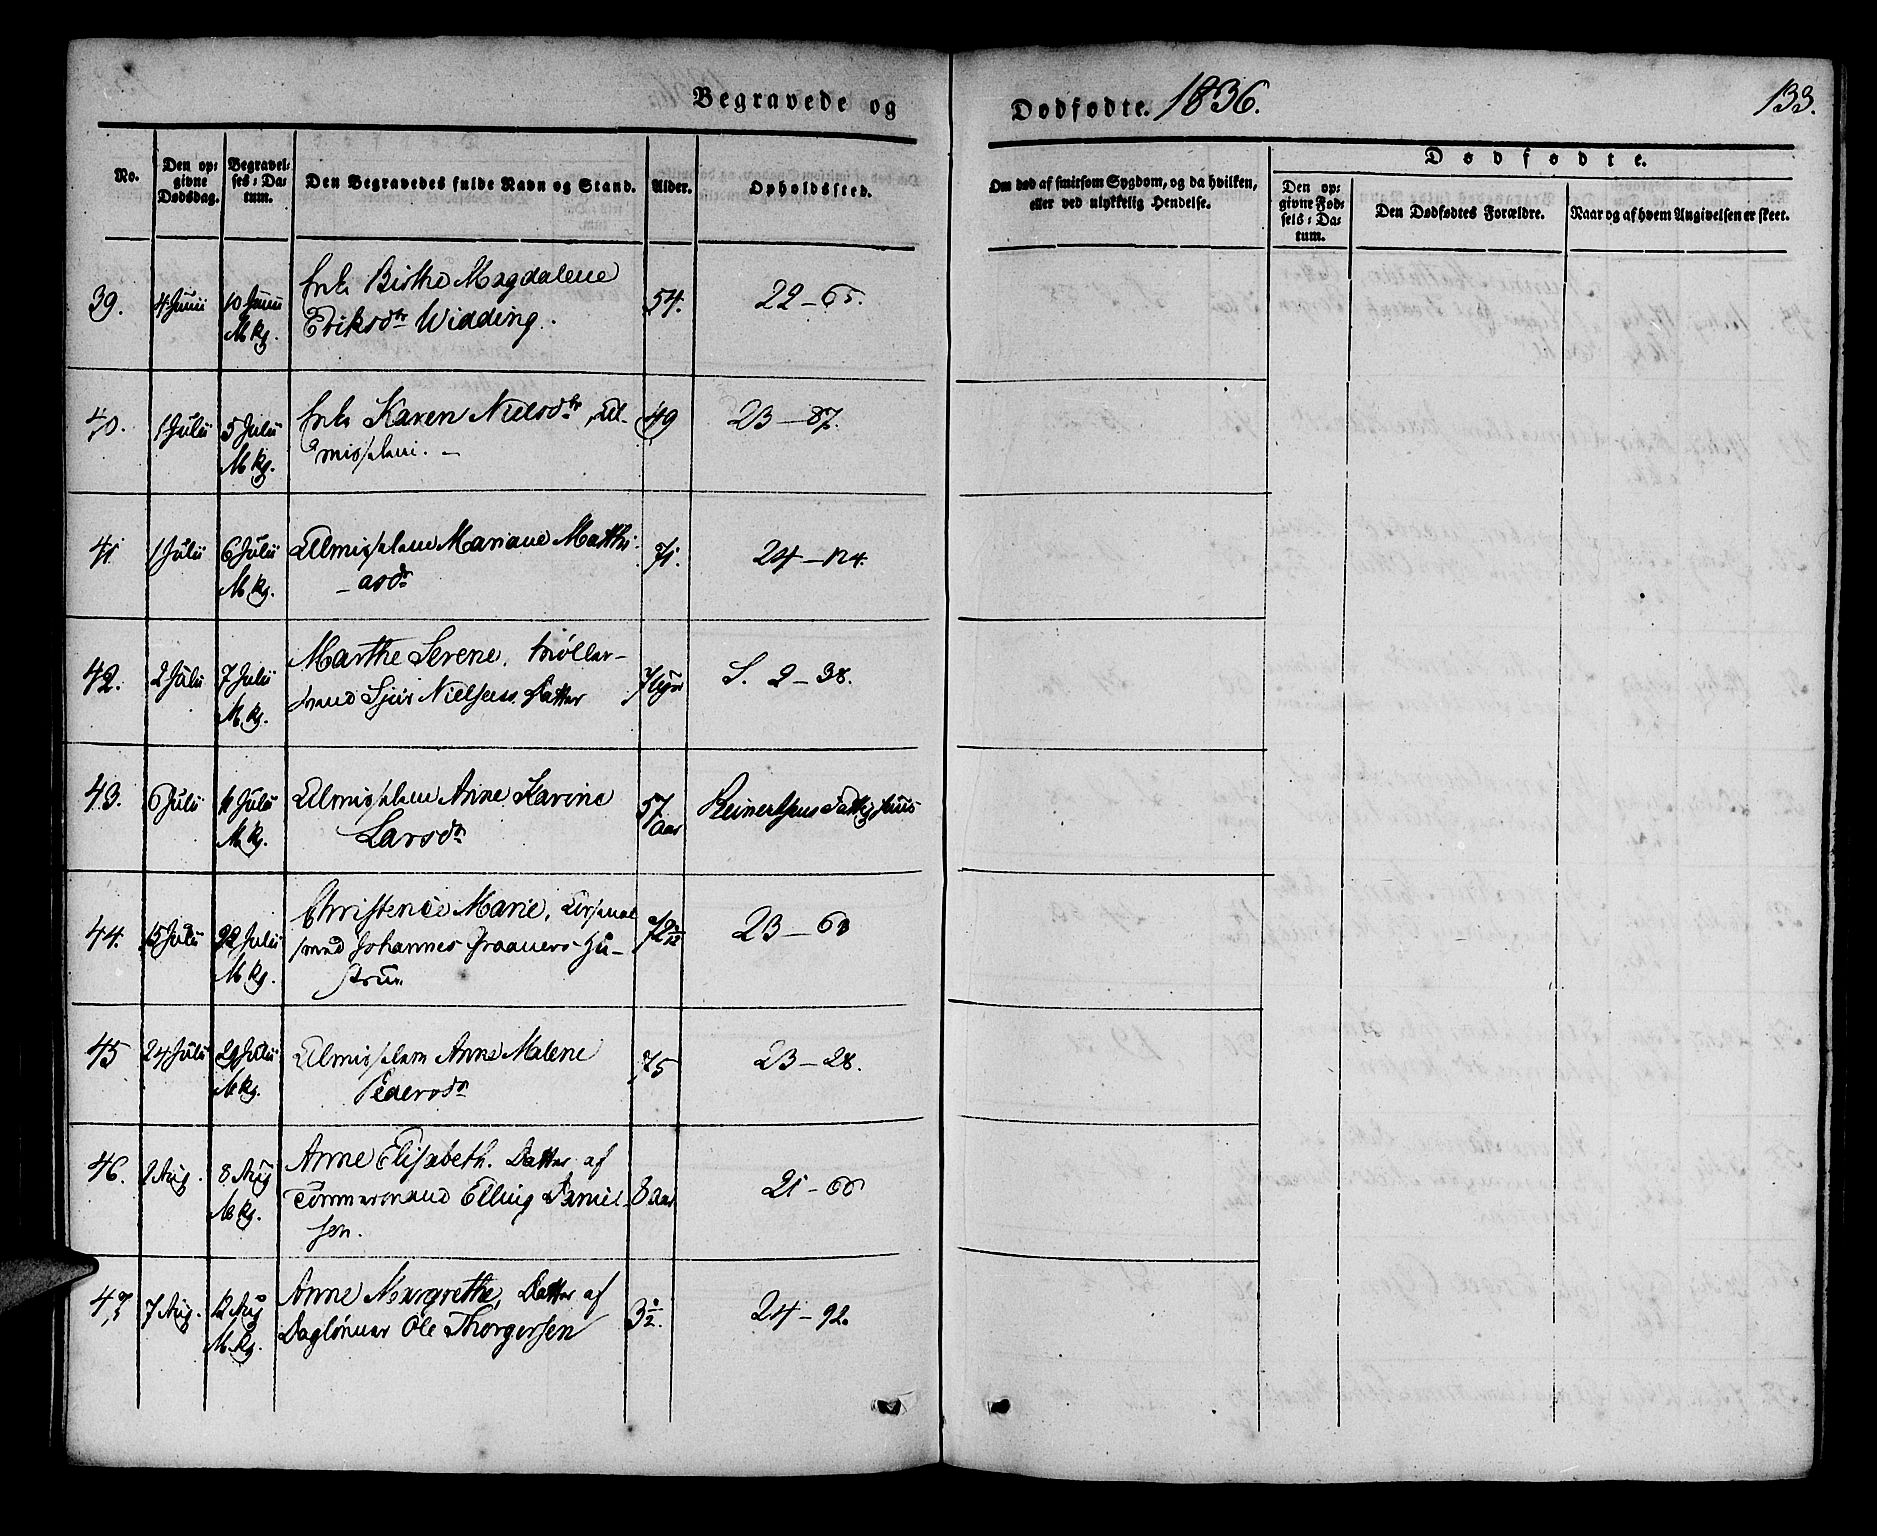 Begravede og
Dødfødte. 1836.
133.
No.
Den opgivne Dødsdag.
Begravelses-Datum.
Den Begravedes fulde Navn og Stand.
Alder.
Opholdssted.
Om død af smitsom Sygdom, og da hvilken, eller ved ulykkelig Hendelse.
Dødfødte.
Den opgivne Fødsels-Datum.
Den Dødfødtes Forældre.
Naar og af hvem Angivelsen er skeet.
39. 4 Junii 10 Junii Enke Birthe Magdalene 54. 22-65.
M kg. Eriksdr Widding.
40. 1 Julii 5 Julii Enke Karen Nielsdr, Al- 49 23-87.
M kg. mislem. -
41. 1 Julii 6 Julii Almislem Mariane Matthi- 71. 24-124.
M kg. -asdr
42. 2 Julii 7 Julii Marthe Serene, Møller- 7 Uger S. 2-38.
M. kg. svend Sjur Nielsens Datter
43. 6 Julii 11 Julii Almislem Anne Karine 57 Aar Reinertsens Fattighuus
M. kg. Larsdr
44. 15 Julii 22 Julii Christence Marie, Arsenal 23-63
M kg. mnd Johannes Graauers Hu-
strue.
45 24 Julii 29 Julii Almislem Anne Malene 75 23-28.
M kg. Pedersdr
46. 2 Aug. 8 Aug Anne Elisabeth. Datter af 8 Aar 21-66
M kg. Tømmermand Elling Daniel-
sen.
47 7 Aug. 12 Aug Anne Margrethe, Datter af 3 1/2. 24-92.
M. kg. Daglønner Ole Thorgersen